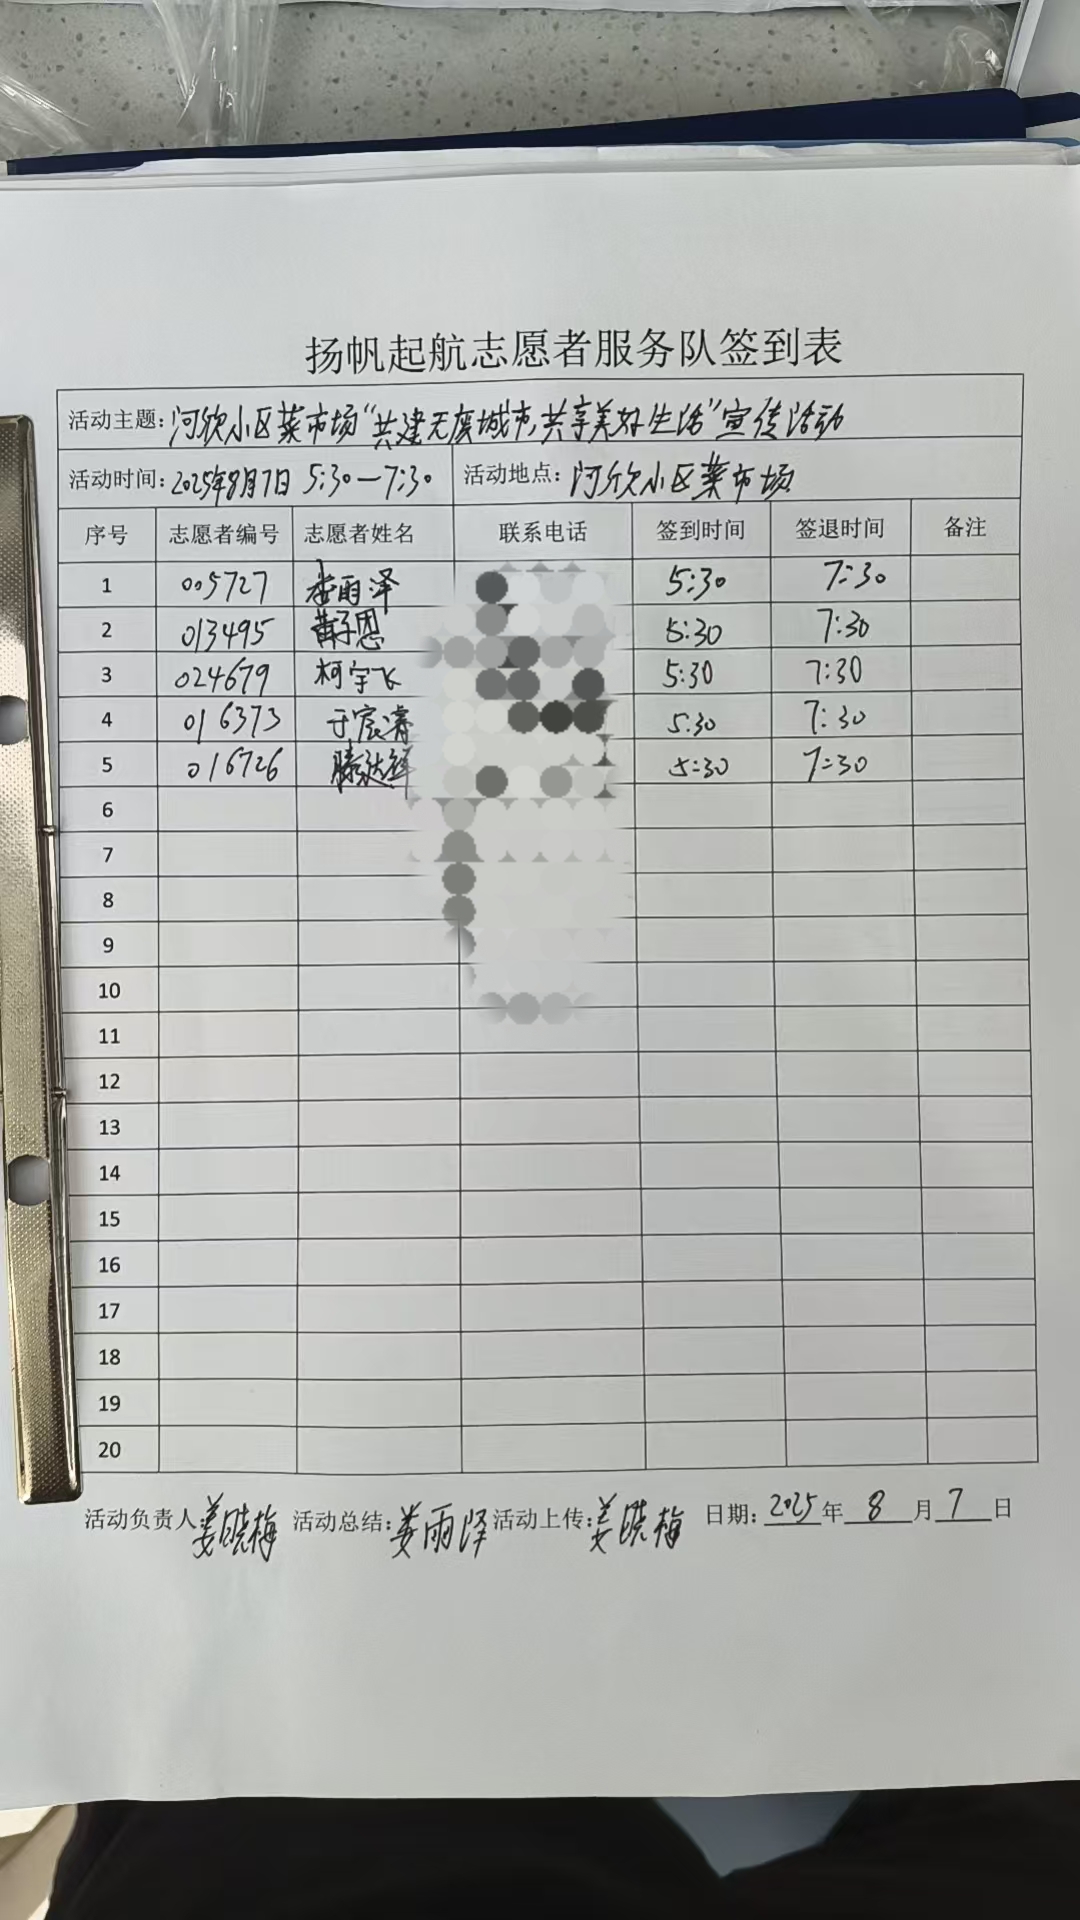 扬帆起航志愿者服务队签到表
活动主题:河欣小区菜市场“共建无废城市,共享美好生活”宣传活动
活动时间:2025年8月7日 5:30—7:30 活动地点:河欣小区菜市场
序号 志愿者编号 志愿者姓名 联系电话 签到时间 签退时间 备注
1 005727 娄雨泽 5:30 7:30
2 013495 黄子恩 5:30 7:30
3 024679 柯宇飞 5:30 7:30
4 016373 于宸 5:30 7:30
5 016726 滕 5:30 7:30
6
7
8
9
10
11
12
13
14
15
16
17
18
19
20
活动负责人:姜晓梅 活动总结:娄雨泽 活动上传:姜晓梅 日期:2025年8月7日